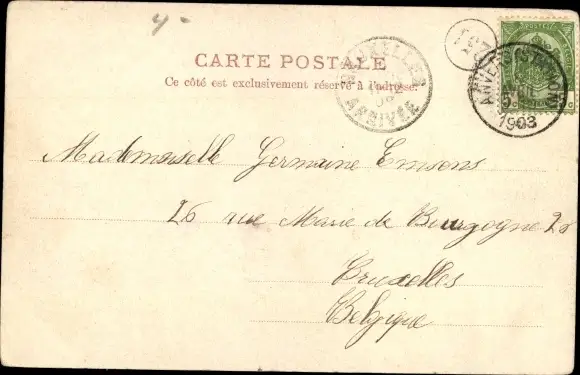 4-
CARTE POSTALE
Ce côté est exclusivement réservé à l'adresse.
BRUXELLES
ARRIVÉE
ANVERS
AVRIL
1903
Mademoiselle Germaine Emsens
26 rue Marie de Bourgogne 26
Bruxelles
Belgique